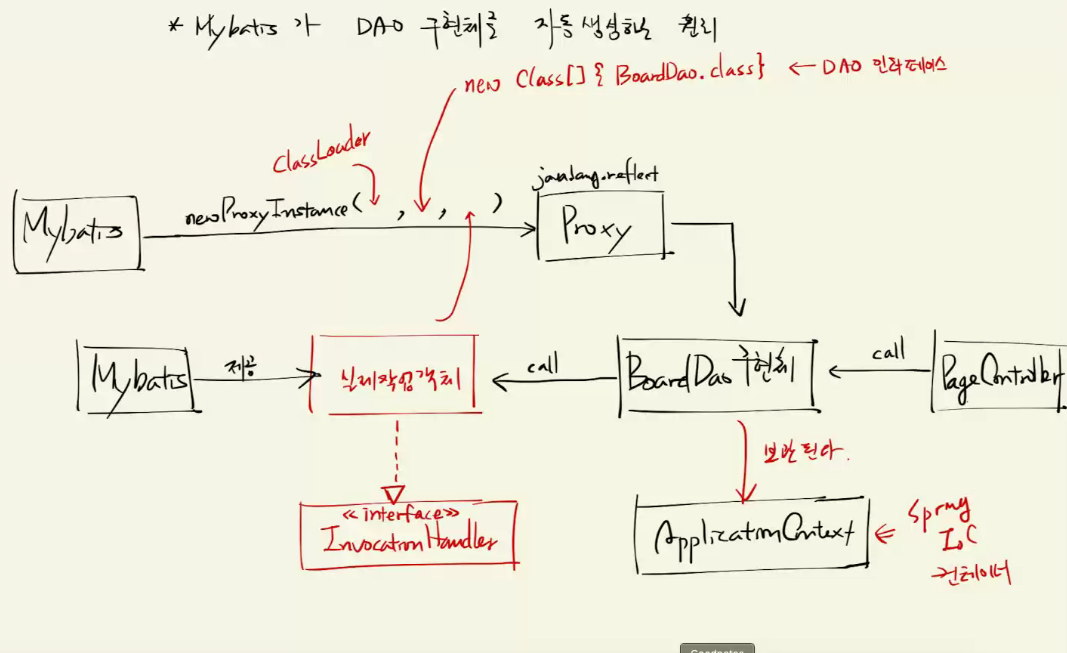 * Mybatis가 DAO 구현체를 자동생성하는 원리
new Class[] { BoardDao.class} ← DAO 인터페이스
ClassLoader
java.lang.reflect
Mybatis
newProxyInstance( , , )
Proxy
Mybatis
제공
실제작업객체
call
BoardDao 구현체
call
PageController
보관된다.
<<interface>>
InvocationHandler
ApplicationContext
Spring
IoC
컨테이너